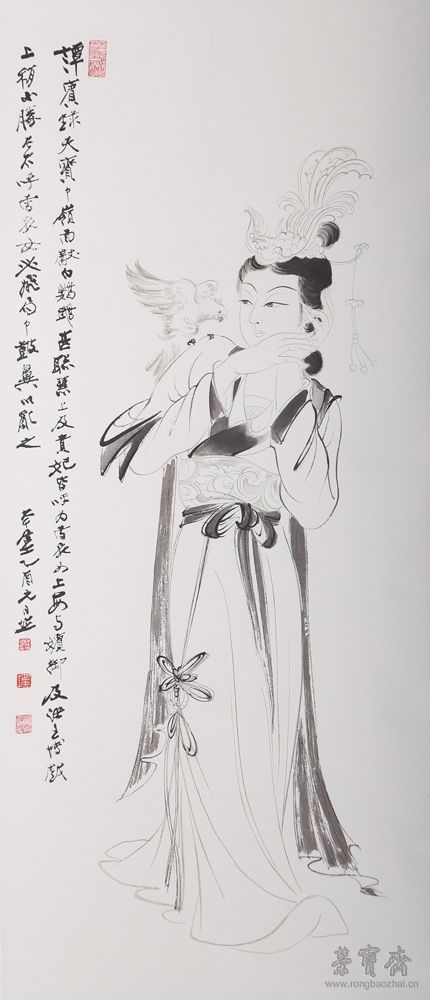 譚賓錄天寶中嶺南獻白鸚鵡甚聰慧上及貴妃皆呼为雪衣女上每与嬪御及诸王博戲
上稍不勝左右呼雪衣女必飛局中鼓翼以亂之
乙酉元月
榮寶齋
www.rongbaozhai.cn